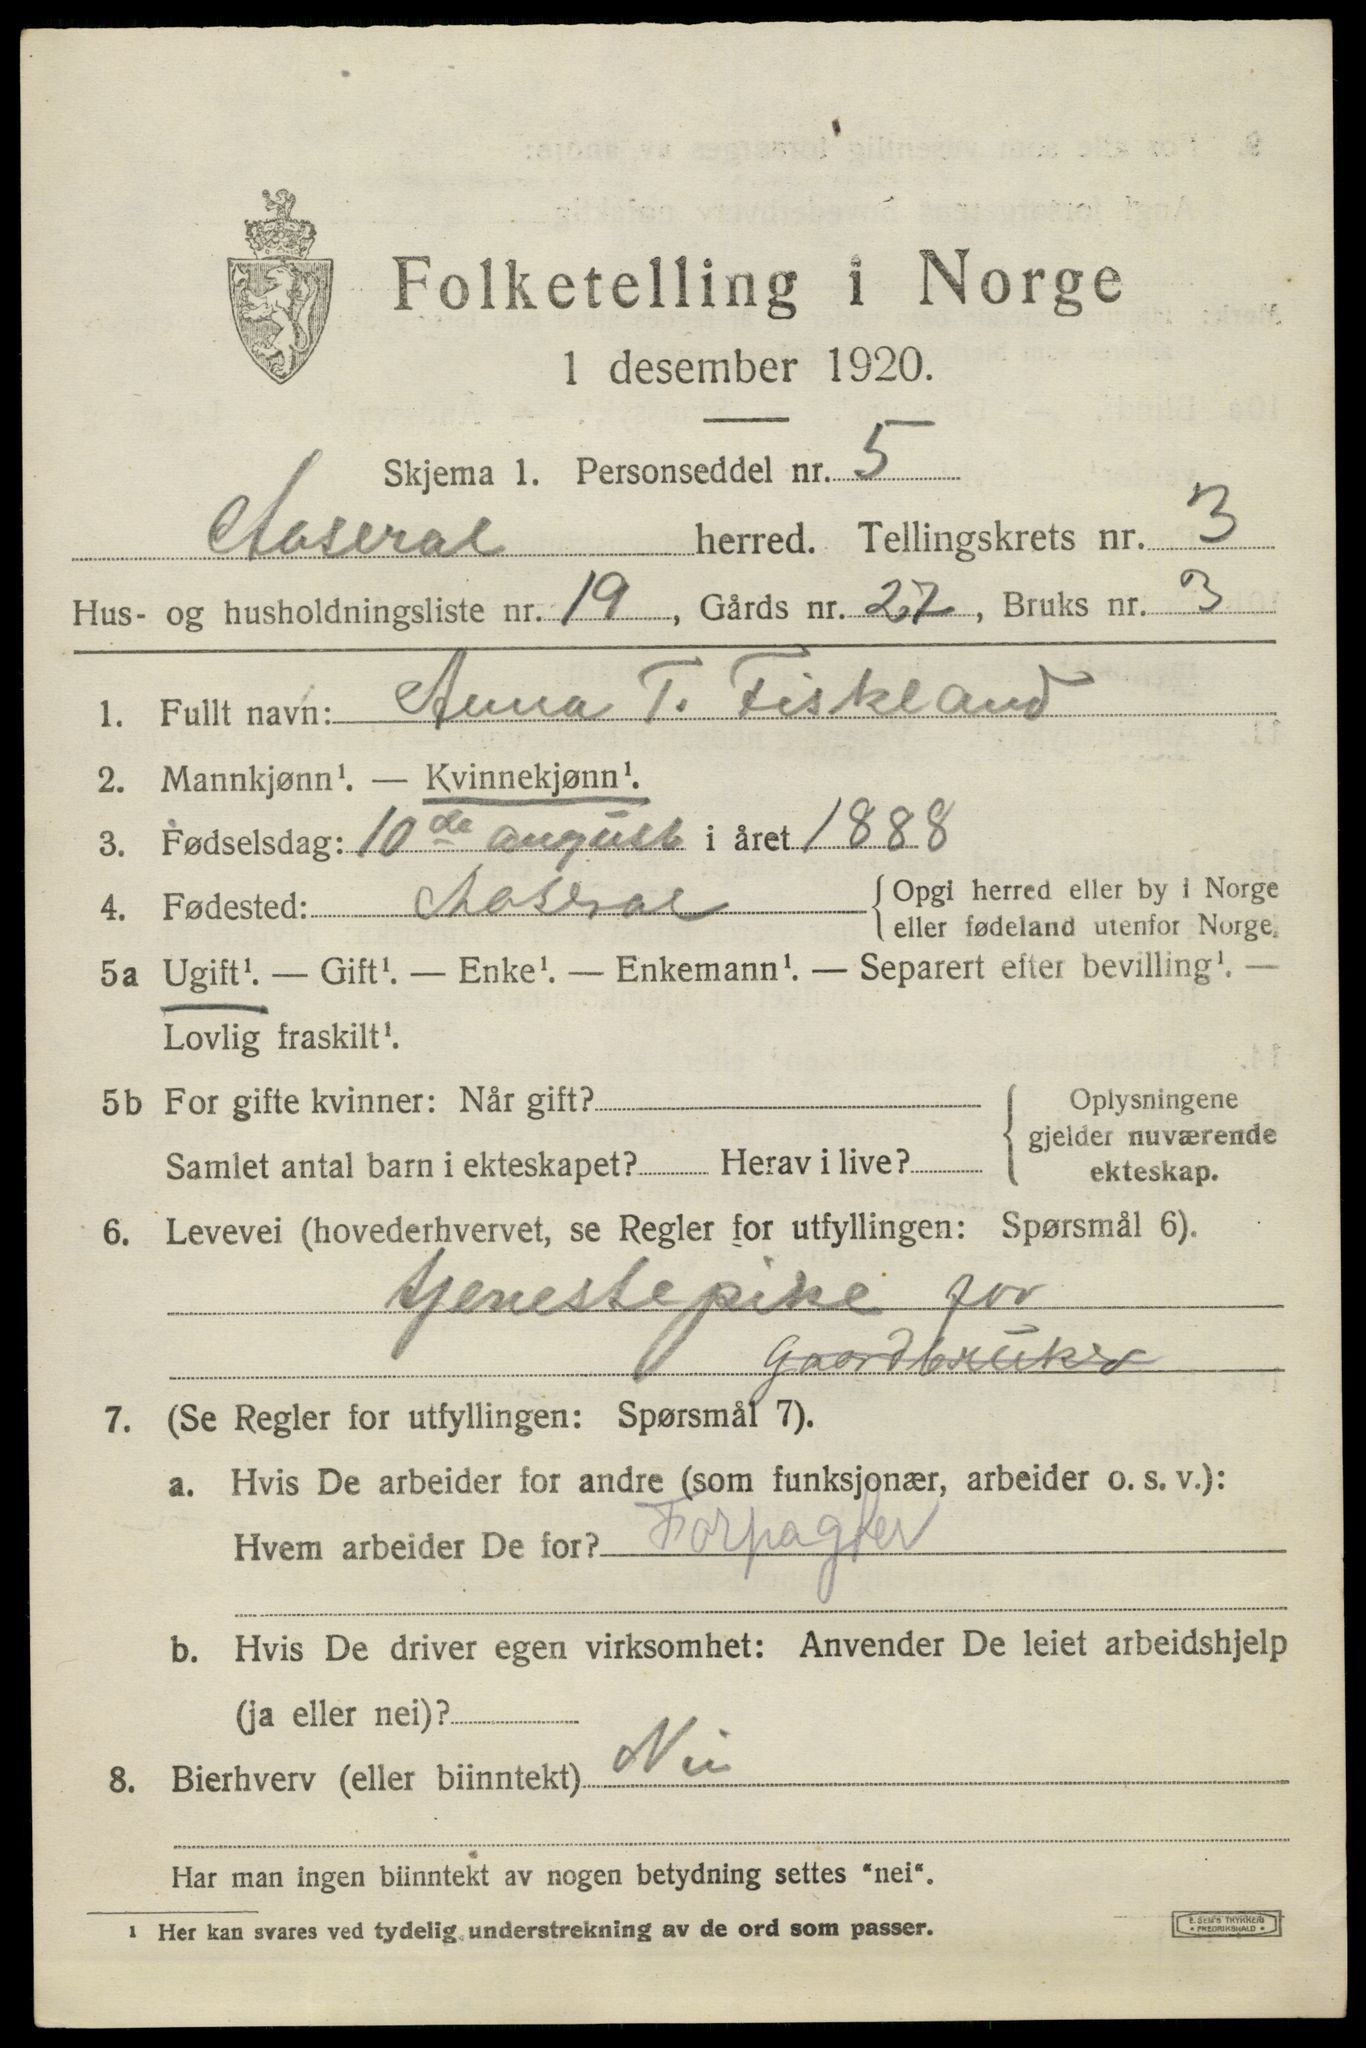 Folketelling i Norge
1 desember 1920.
Skjema 1. Personseddel nr. 5
Aaseral herred. Tellingskrets nr. 3
Hus- og husholdningsliste nr. 19, Gårds nr. 27, Bruks nr. 3
1. Fullt navn: Anna T. Fiskland
2. Mannkjønn¹. — Kvinnekjønn¹.
3. Fødselsdag: 10de august i året 1888
4. Fødested: Aaseral {Opgi herred eller by i Norge
eller fødeland utenfor Norge.
5a Ugift¹. — Gift¹. — Enke¹. — Enkemann¹. — Separert efter bevilling¹. —
Lovlig fraskilt¹.
5b For gifte kvinner: Når gift? { Oplysningene
gjelder nuværende
Samlet antal barn i ekteskapet? Herav i live?
ekteskap.
6. Levevei (hovederhvervet, se Regler for utfyllingen: Spørsmål 6).
tjenestepike for
Gaardbruker
7. (Se Regler for utfyllingen: Spørsmål 7).
a. Hvis De arbeider for andre (som funksjonær, arbeider o. s. v.):
Hvem arbeider De for? Forpagter
b. Hvis De driver egen virksomhet: Anvender De leiet arbeidshjelp
(ja eller nei)?
8. Bierhverv (eller biinntekt) Nei
Har man ingen biinntekt av nogen betydning settes "nei".
¹ Her kan svares ved tydelig understrekning av de ord som passer.
E. SEM'S TRYKKERI
FREDRIKSHALD